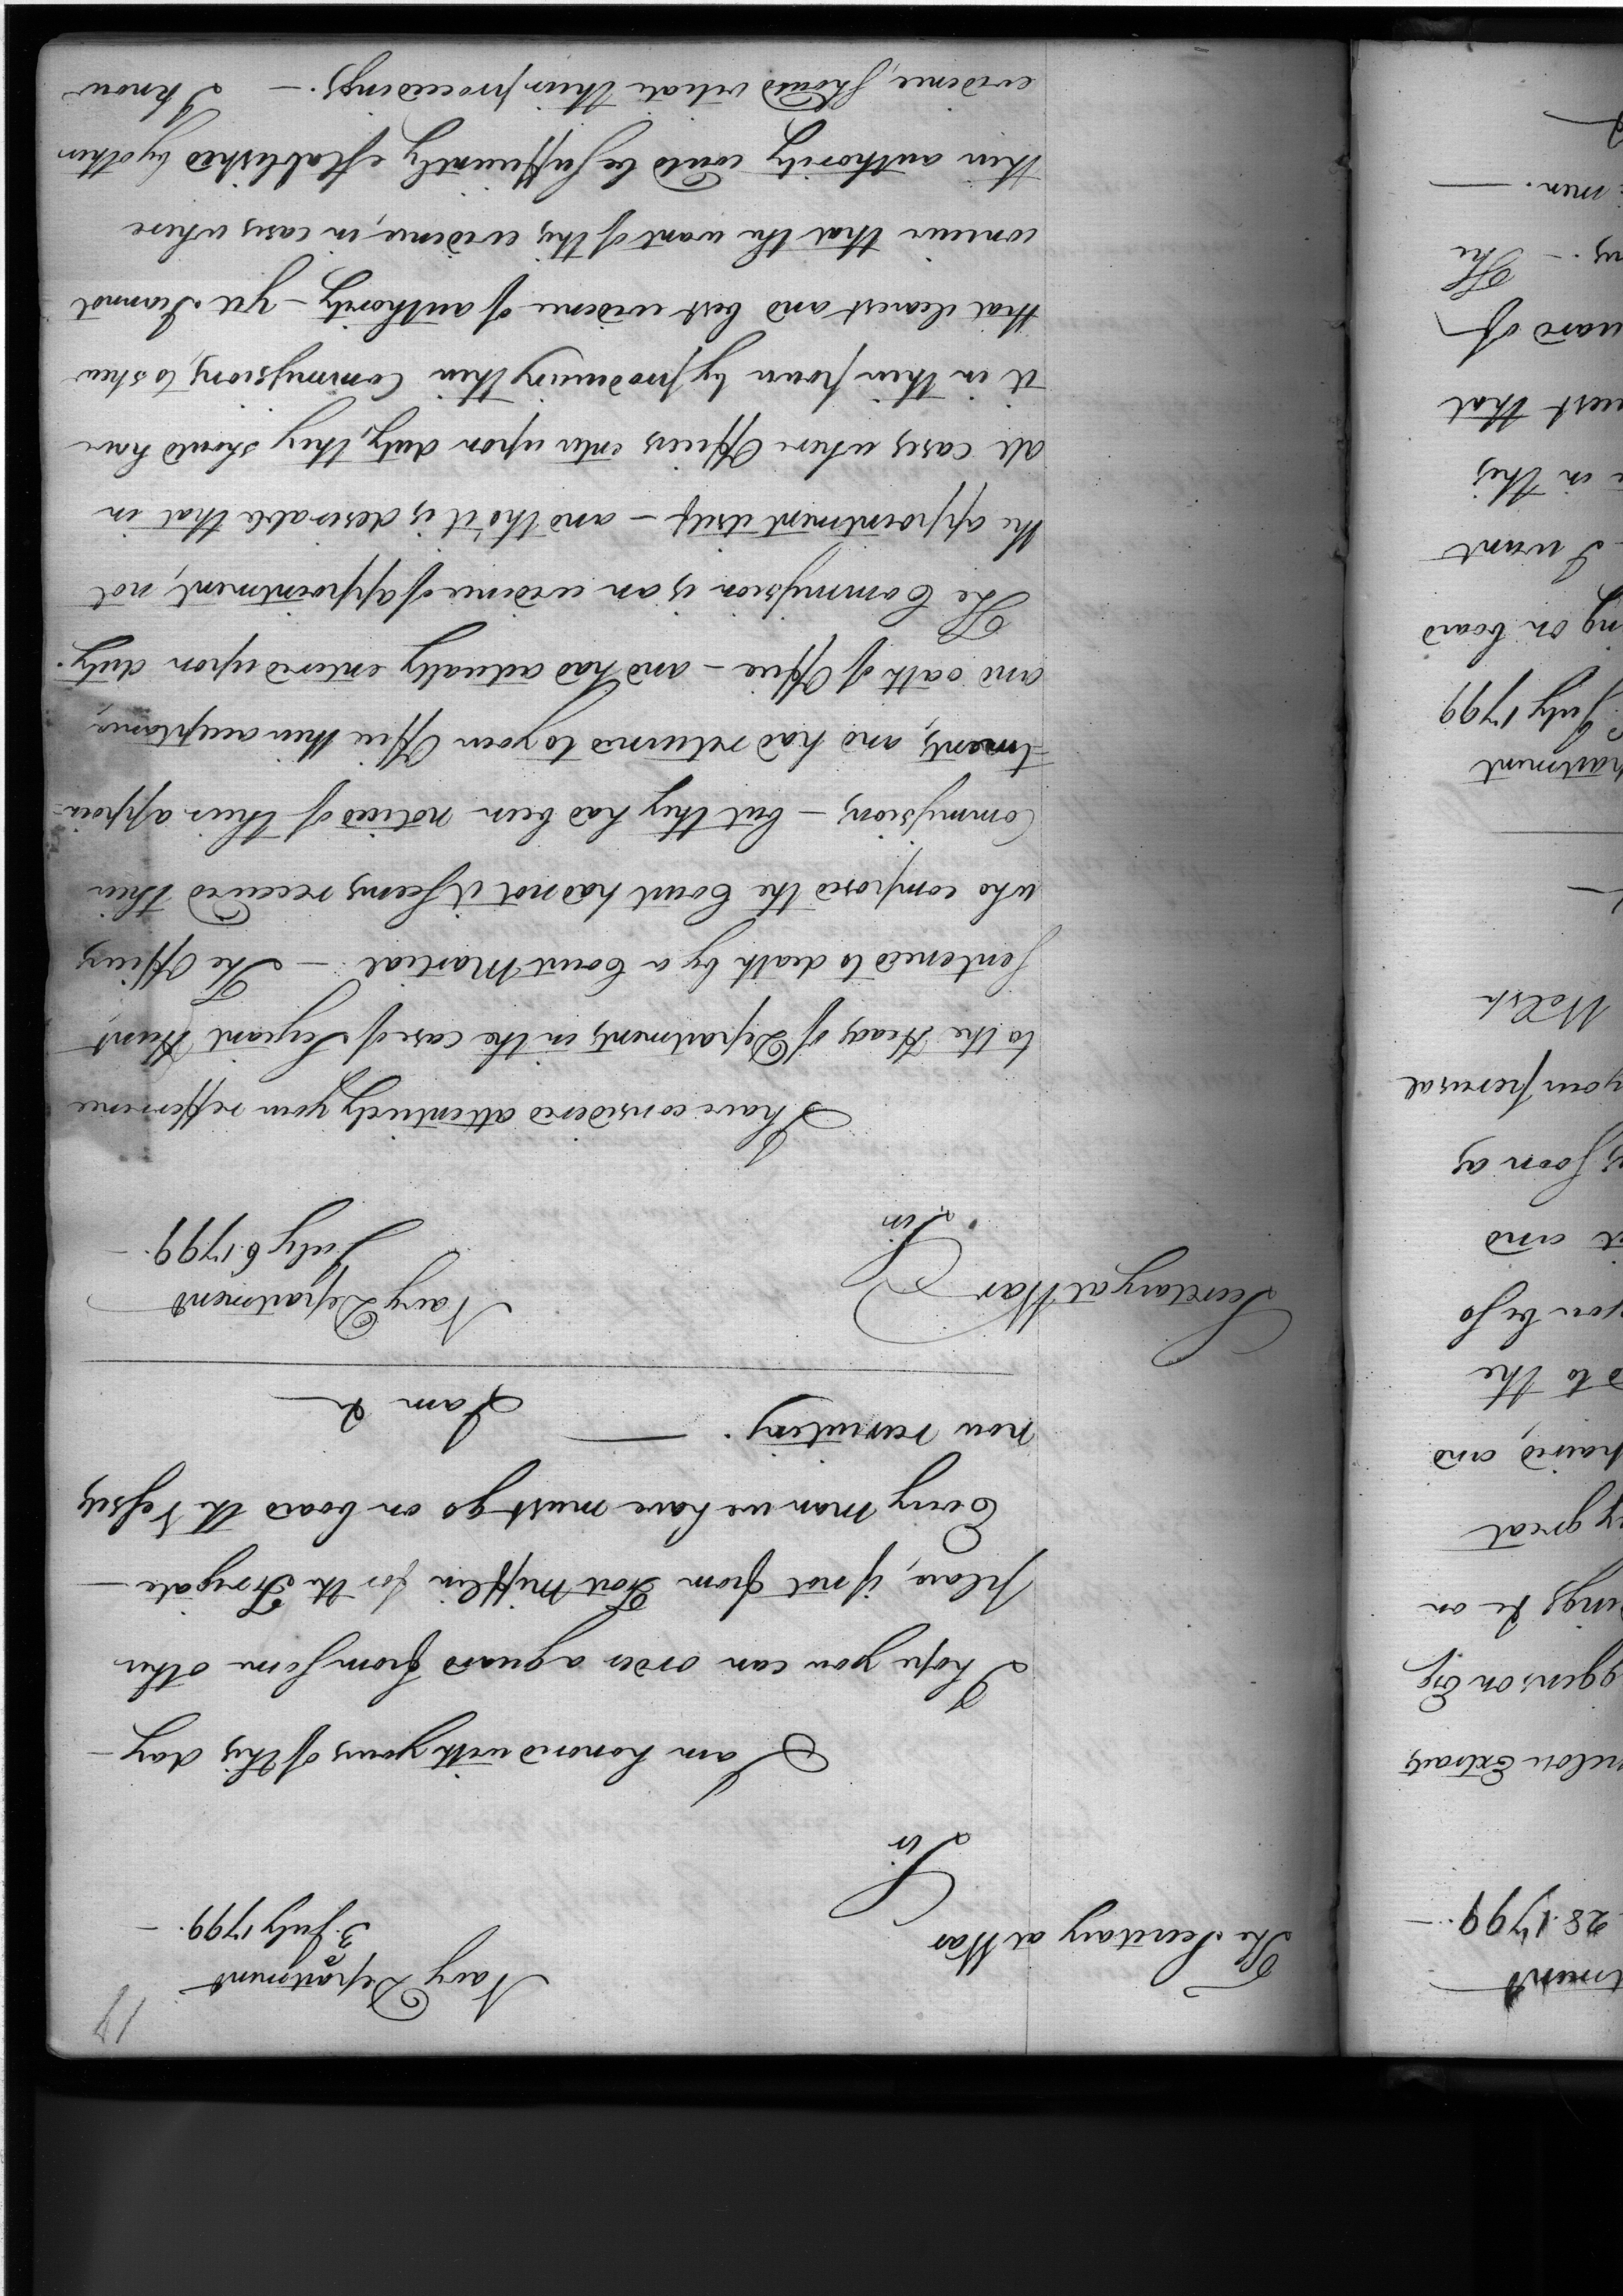 19
Navy Department
3 July 1799.
The Secretary at War
Sir
I am honored with yours of this day—
I hope you can order a guard from some other
place, if not from Fort Mifflin for the Frigate—
Every man we have must go on board the Vessels
now recruiting. — I am &
Navy Department
July 6. 1799.
Secretary at War
Sir
I have considered attentively your refference
to the Heads of Departments in the case of Sergeant Hunt
sentenced to death by a Court Martial — The Officers
who composed the Court had not it seems received their
Commissions — but they had been noticed of their appoin-
tments, and had returned to your Office their acceptances,
and oath of Office — and had actually entered upon duty.
The Commission is an evidence of appointment, not
the appointment itself — and tho' it is desirable that in
all cases where Officers enter upon duty, they should have
it in their power by producing their Commissions, to shew
that clearest and best evidence of authority — yet I cannot
conceive that the want of this evidence, in cases where
their authority could be sufficiently established by other
evidence, should vitiate their proceedings. — I know
tment
28. 1799.—
Extracts
on Esq
ings &c on
great
paired, and
to the
you be so
and
soon as
your perusal
Welsh
partment
July 1799
ng on board
I want
in this
uest that
uard of
The
men.—